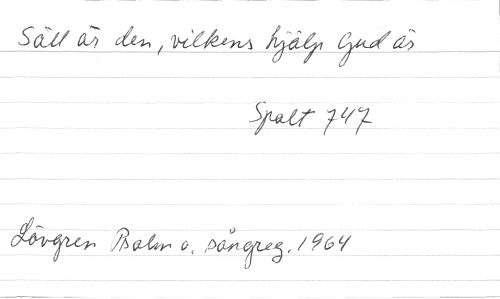 Säll är den, vilkens hjälp Gud är
Spalt 747
Lövgren Psalm o. sångreg. 1964